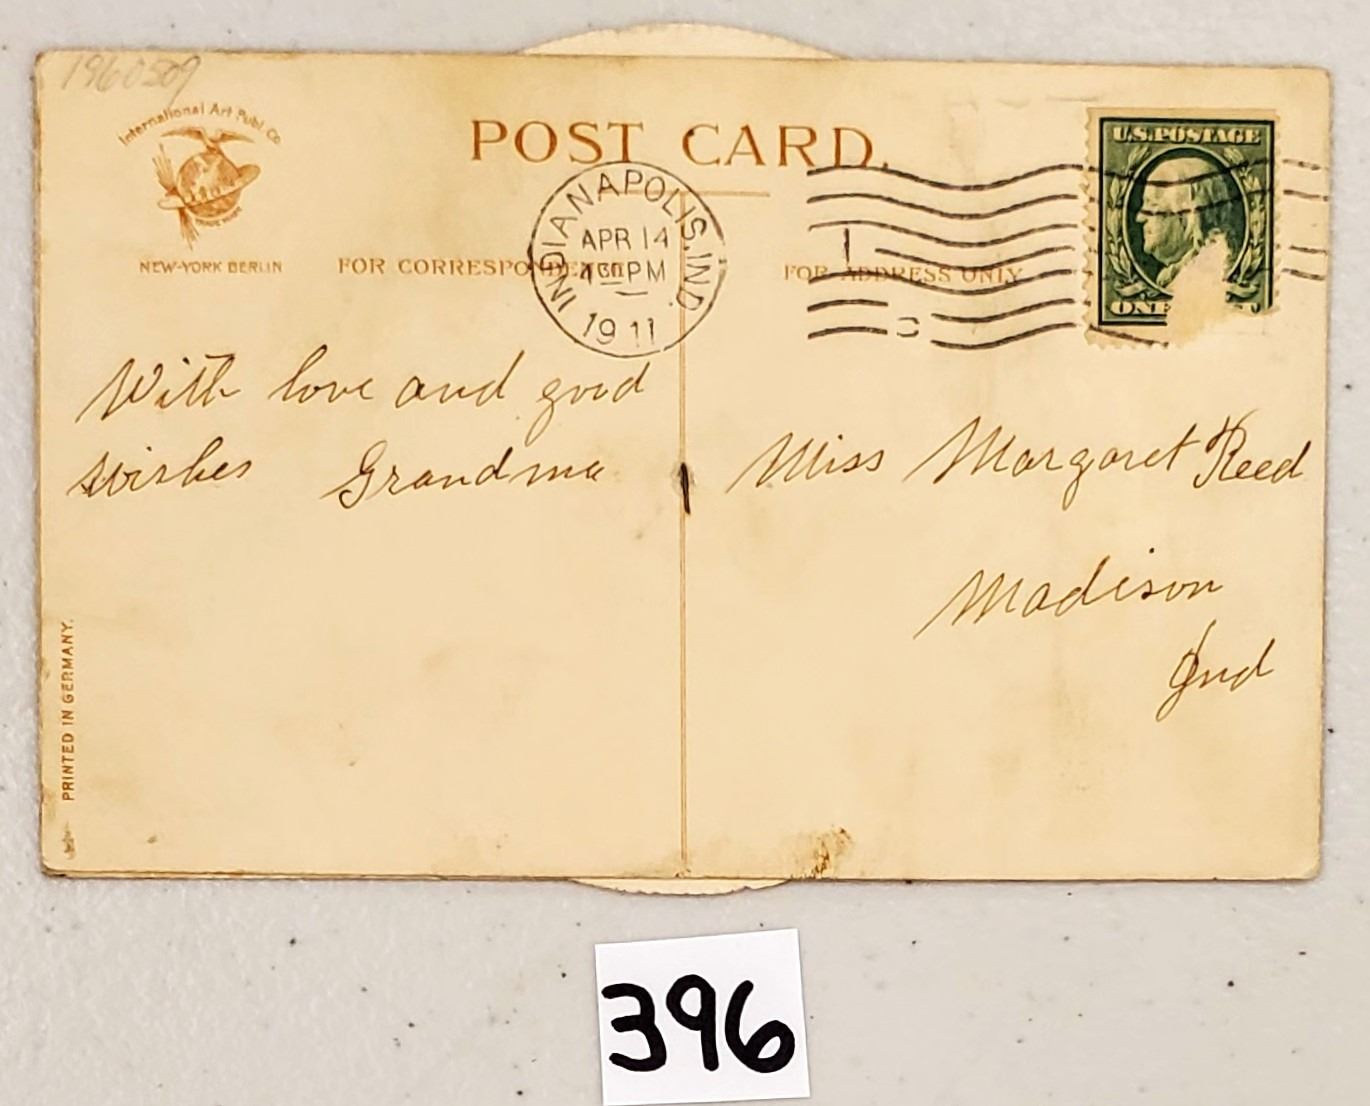 1960509
International Art Publ. Co.
NEW-YORK BERLIN
POST CARD.
FOR CORRESPONDENCE
FOR ADDRESS ONLY
INDIANAPOLIS, IND.
APR 14
4 30 PM
1911
U.S. POSTAGE
ONE
With love and good
wishes Grandma
Miss Margaret Reed
Madison
Ind
PRINTED IN GERMANY.
396